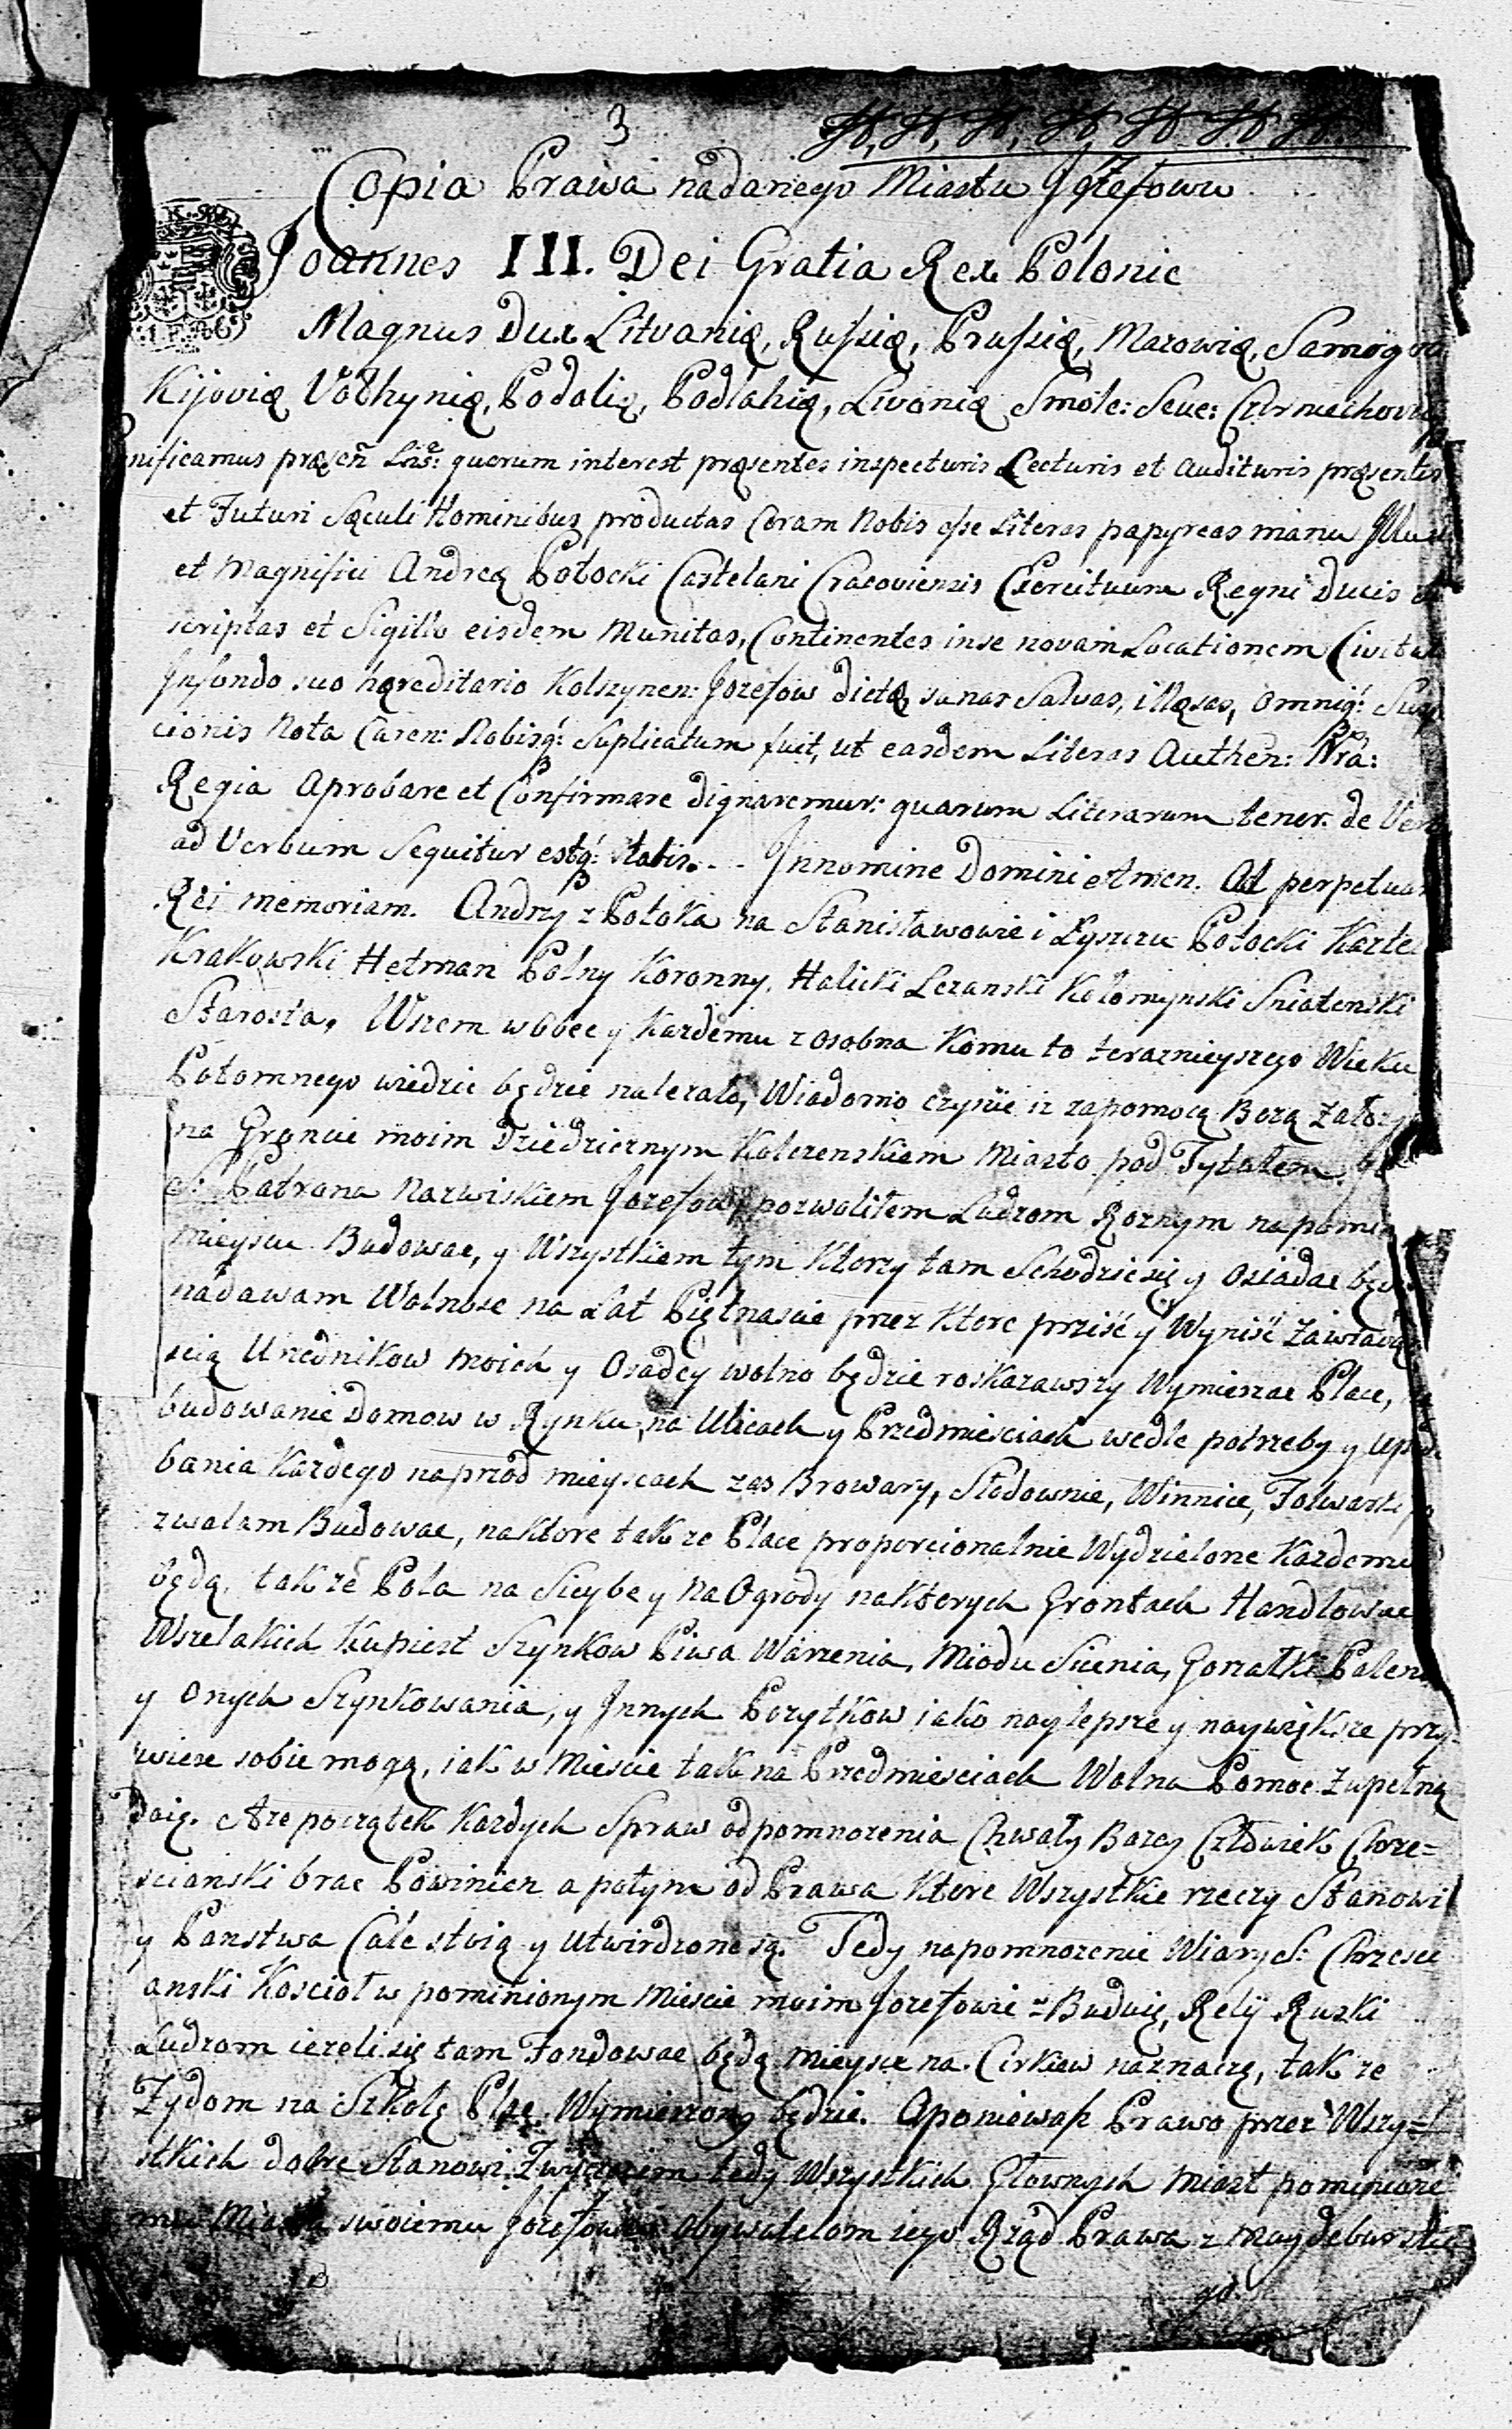 3
Copia Prawa nadanego Miastu Jozefowu
Joannes III. Dei Gratia Rex Polonie
Magnus Dux Litvanię, Russię, Prussię, Mazowię, Samogi
Kijovię Volhynię, Podolię, Podlahię, Livonię Smole: Seve: Czerniechovię
nificamus pręsen Lris: quorum interest pręsentes inspecturis Lecturis et audituris pręsentis
et Futuri Sęculi Hominibus productas Coram Nobis esse Literas papyreas manu Illus
et Magnifici Andreę Potocki Castelani Cracoviensis Exercituum Regni Ducis
scriptas et Sigillo eisdem Munitas, Continentes in se novam Locationem Civitat
In fondo suo hęreditario Kolszynen: Jozefow dictę, sanas Salvas, illęsas, omniq: Susp
cionis Nota Caren: Nobisq: Suplicatum fuit, ut easdem Literas Authen: Nra:
Regia Aprobare et Confirmare dignaremur: quarum Literarum tenor de Verb
ad Verbum Sequitur estq: talis. - - In nomine Domini Amen. Ad perpetuam
Rei memoriam. Andrzy z Potoka na Stanisławowie i Łyszcu Potocki Kasztel
Krakowski Hetman Polny Koronny, Halicki Lezanski Kołomynski Sniatenski
Starosta, Wszem wobec y Kazdemu z osobna Komu to teraznieyszego Wieku
Potomnego wiedzic będzie nalezało, Wiadomo czynie iz zapomocą Bozą Założ
na Gruncie moim Dziedzicznym Kolczenskiem Miasto pod Tytułem
S: Patrona Nazwiskiem Jozefow, pozwolitem Ludzom Roznym na pomie
mieyscu Budowac, y Wszystkiem tym Ktorzy tam Schodzic się y Osiadac będ
nadawam Wolnosc na Lat Piętnascie przez Ktore prziść y Wyniść Zawiadę
scią Urzednikow Moich y Osadcy wolno będzie roskazawszy Wymierzac Place, na
budowanie Domow w Rynku, na Ulicach y Przedmiesciach wedle potrzeby y upod
bania Kazdego naprzod mieyscach zas Browary, Słodownie, Winnice, Folwarki po
zwalam Budowac, naktore takze Place proporcionalnie Wydzielone Kazdemu
będą, takze Pola na Sieybe y na Ogrody naktorych Grontach Handlowac
Wszelakich Kupiest Szynkow Piwa Warzenia, Miodu Sicenia, Gorzałki Palenia
y Onych Szynkowania, y Innych Pozytkow iako naylepsze y naywiększe przy=
wiesc sobie mogą, iak w Miescie tak na Przedmiesciach Wolna Pomoc Zupełną
Daię. A ze początek Kazdych Spraw od pomnozenia Chwały Bozey Człowiek Chrze=
scianski brac Powinien a potym od Prawa Ktore Wszystkie rzeczy Stanowi
y Panstwa Całe stoią y utwirdzone są. Tedy na pomnozenie Wiary S: Chrzesci
anski Kosciol w pominionym Miescie moim Jozefowie z Buduię, Relij Ruski
Ludzom iezeli się tam Fondowac będą mieysce na Cirkiew naznaczę, takze
Żydom na Szkołę Plac Wymierzony będzie. A poniewasz Prawo przez Wszy=
stkich dobre Stanowi Zwyczaiem tedy Wszystkich Głownych Miast pominione
mu Miastu swoiemu Jozefowu Obywatelom iego Rząd Prawa z Maydeburskie
go